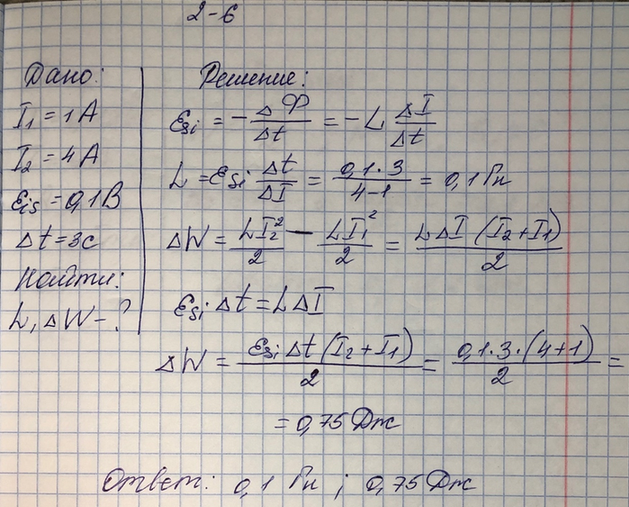 2-6
Дано:
I₁ = 1A
I₂ = 4A
Ɛis = 0,1В
Δt = 3с
Найти:
L, ΔW - ?
Решение:
Ɛsi = - ΔФ/Δt = - L ΔI/Δt
L = Ɛsi Δt/ΔI = 0,1·3/4-1 = 0,1 Гн
ΔW = LI₂²/2 - LI₁²/2 = LΔI (I₂+I₁)/2
Ɛsi Δt = LΔI
ΔW = Ɛsi Δt (I₂+I₁)/2 = 0,1·3·(4+1)/2 =
= 0,75 Дж
Ответ: 0,1 Гн ; 0,75 Дж